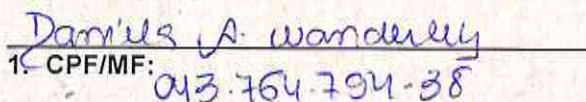 Daniela A. Wanderley
1. CPF/MF: 043.764.794-38